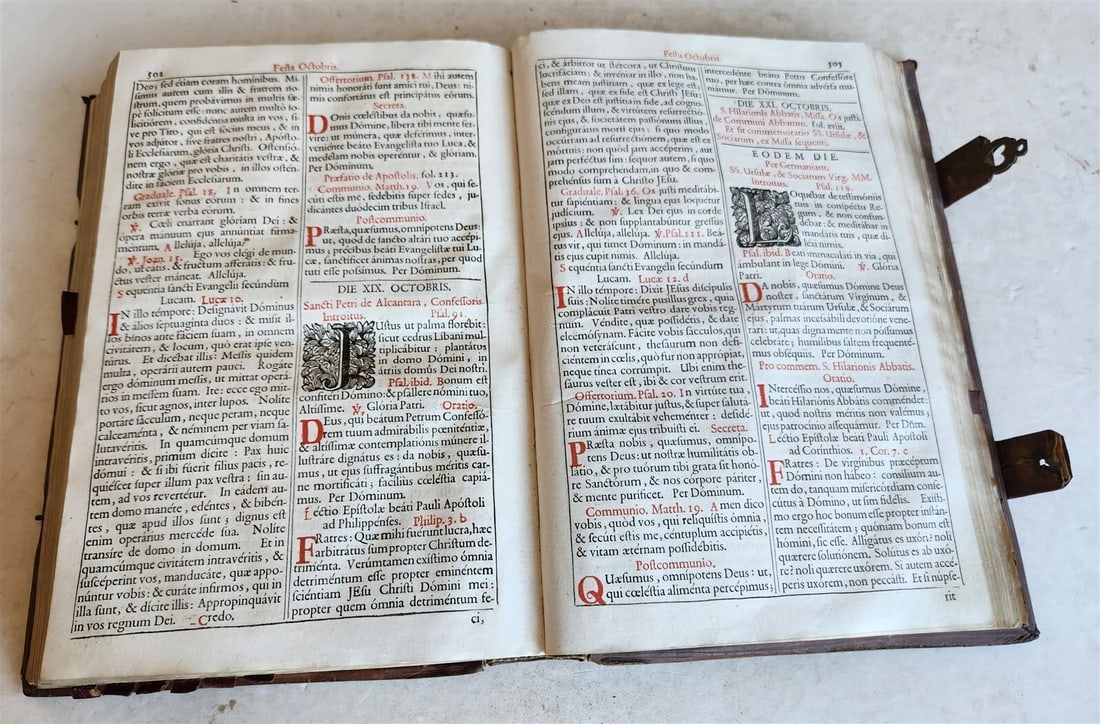 502
Festa Octobris.
Deo; sed étiam coram hominibus. Mi-
simus autem cum illis & fratrem no-
strum, quem probávimus in multis sæ-
pè solícitum esse: nunc autem multò so-
licitiórem, confidéntia multa in vos, si-
ve pro Tito, qui est socius meus, & in
vos adjútor, sive fratres nostri, Apósto-
li Ecclesiárum, glória Christi. Ostensió-
nem ergo, quæ est charitátis vestræ, &
nostræ glóriæ pro vobis, in illos ostén-
dite in fáciem Ecclesiárum.
Graduale. Psal. 18. In omnem ter-
ram exívit sonus eórum: & in fines
orbis terræ verba eórum.
℣. Cœli enárrant glóriam Dei: &
ópera mánuum ejus annúntiat firma-
mentum. Allelúja, allelúja.
℣. Joan. 15. Ego vos elégi de mun-
do, ut eátis, & fructum afferátis: & fru-
ctus vester máneat. Allelúja.
Sequéntia sancti Evangélii secúndùm
Lucam. Lucæ 10.
IN illo témpore: Designávit Dóminus
& álios septuagínta duos: & misit il-
los binos ante fáciem suam, in omnem
civitátem, & locum, quò erat ipse ven-
túrus. Et dicébat illis: Messis quidem
multa, operárii autem pauci. Rogáte
ergo dóminum messis, ut mittat operá-
rios in messem suam. Ite: ecce ego mit-
to vos, sicut agnos, inter lupos. Nolíte
portáre sácculum, neque peram, neque
calceaménta, & néminem per viam sa-
lutavéritis. In quamcúmque domum
intravéritis, primùm dícite: Pax huic
dómui: & si ibi fúerit fílius pacis, re-
quiéscet super illum pax vestra: sin au-
tem, ad vos revertétur. In eádem au-
tem domo manéte, edéntes, & bibén-
tes, quæ apud illos sunt; dignus est
enim operárius mercéde sua. Nolíte
transíre de domo in domum. Et in
quamcúmque civitátem intravéritis, &
suscéperint vos, manducáte, quæ appo-
núntur vobis: & curáte infírmos, qui in
illa sunt, & dícite illis: Appropinquávit
in vos regnum Dei. Credo.
Offertorium. Psal. 138. Mihi autem
nimis honoráti sunt amíci tui, Deus: ni-
mis confortátus est principátus eórum.
Secreta.
DOnis cœléstibus da nobis, quæsu-
mus Dómine, líbera tibi mente ser-
víre: ut múnera, quæ deférimus, inter-
veniénte beáto Evangelísta tuo Luca, &
medélam nobis operéntur, & glóriam.
Per Dóminum.
Præfatio de Apostolis. fol. 213.
Communio. Matth. 19. Vos, qui se-
cúti estis me, sedébitis super sedes, ju-
dicántes duódecim tribus Israel.
Postcommunio.
PRæsta, quæsumus, omnípotens Deus:
ut, quod de sancto altári tuo accépi-
mus; précibus beáti Evangelístæ tui Lu-
cæ, sanctíficet ánimas nostras, per quod
tuti esse possímus. Per Dóminum.
DIE XIX. OCTOBRIS.
Sancti Petri de Alcantara, Confessoris.
Introitus. Psal. 91.
JUstus ut palma florébit:
sicut cedrus Líbani mul-
tiplicábitur: plantátus
in domo Dómini, in
átriis domûs Dei nostri.
Psal. ibid. Bonum est
confitéri Dómino: & psállere nómini tuo,
Altíssime. ℣. Glória Patri. Oratio.
DEus, qui beátum Petrum Confessó-
rem tuum admirábilis pœniténtiæ,
& altíssimæ contemplatiónis múnere il-
lustráre dignátus es; da nobis, quæsu-
mus, ut ejus suffragántibus méritis car-
ne mortificáti; facílius cœléstia capiá-
mus. Per Dóminum.
Léctio Epístolæ beáti Pauli Apóstoli
ad Philippénses. Philip. 3. b
FRatres: Quæ mihi fuérunt lucra, hæc
arbitrátus sum propter Christum de-
triménta. Verúmtamen exístimo ómnia
detriméntum esse propter eminéntem
sciéntiam JEsu Christi Dómini mei:
propter quem ómnia detriméntum fe-
ci,
Festa Octobris.
503
ci, & árbitror ut stércora, ut Christum
lucrifáciam: & invéniar in illo, non ha-
bens meam justítiam, quæ ex lege est,
sed illam, quæ ex fide est Christi JEsu;
quæ ex Deo est justítia in fide, ad cogno-
scéndum illum, & virtútem resurrectió-
nis ejus, & societátem passiónum illíus,
configurátus morti ejus: si quo modo
occúrram ad resurrectiónem, quæ est ex
mórtuis: non quòd jam accéperim, aut
jam perféctus sim: sequor autem, si quo
modo comprehéndam, in quo & com-
prehénsus sum à Christo JEsu.
Graduale. Psal. 36. Os justi meditábi-
tur sapiéntiam: & lingua ejus loquétur
judícium. ℣. Lex Dei ejus in corde
ipsíus; & non supplantabúntur gressus
ejus. Allelúja, allelúja. ℣. Psal. 111. Beá-
tus vir, qui timet Dóminum: in mandá-
tis ejus cupit nimis. Allelúja.
Sequéntia sancti Evangélii secúndùm
Lucam. Lucæ 12. d
IN illo témpore: Dixit JEsus discípulis
suis: Nolíte timére pusíllus grex, quia
complácuit Patri vestro dare vobis reg-
num. Véndite, quæ possidétis, & date
eleemósynam. Fácite vobis sácculos, qui
non veteráscunt, thesáurum non defi-
ciéntem in cœlis, quò fur non apprópiat,
neque tínea corrúmpit. Ubi enim the-
sáurus vester est, ibi & cor vestrum erit.
Offertorium. Psal. 20. In virtúte tua,
Dómine, lætábitur justus, & super salutá-
re tuum exultábit veheménter: desidé-
rium ánimæ ejus tribuísti ei. Secreta.
PRæsta nobis, quæsumus, omnípo-
tens Deus: ut nostræ humilitátis ob-
látio, & pro tuórum tibi grata sit honó-
re Sanctórum, & nos córpore páriter,
& mente puríficet. Per Dóminum.
Communio. Matth. 19. Amen dico
vobis, quòd vos, qui reliquístis ómnia,
& secúti estis me, céntuplum accipiétis,
& vitam ætérnam possidébitis.
Postcommunio.
QUæsumus, omnípotens Deus: ut,
qui cœléstia aliménta percépimus;
intercedénte beáto Petro Confessóre
tuo, per hæc contra ómnia advérsa mu-
niámur. Per Dóminum.
DIE XXI. OCTOBRIS.
S. Hilarionis Abbatis, Missa. Os justi.
de Communi Abbatum. Fol. xviii.
Et fit commemoratio SS. Ursulæ, &
Sociarum, ex Missa sequenti.
EODEM DIE.
Per Germaniam,
SS. Ursulæ, & Sociarum Virg. MM.
Introitus. Psal. 118.
LOquébar de testimóniis
tuis in conspéctu Re-
gum, & non confun-
débar: & meditábar in
mandátis tuis, quæ di-
léxi nimis.
Psal. ibid. Beáti immaculáti in via, qui
ámbulant in lege Dómini. ℣. Glória
Patri. Oratio.
DA nobis, quæsumus Dómine Deus
noster, sanctárum Vírginum, &
Mártyrum tuárum Ursulæ, & Sociárum
ejus, palmas incessábili devotióne vene-
rári: ut, quas digna mente non póssumus
celebráre; humílibus saltem frequenté-
mus obséquiis. Per Dóminum.
Pro commem. S. Hilarionis Abbatis.
Oratio.
INtercéssio nos, quæsumus, Dómine,
beáti Hilariónis Abbátis comméndet:
ut, quod nostris méritis non valémus;
ejus patrocínio assequámur. Per Dñm.
Léctio Epístolæ beáti Pauli Apóstoli
ad Corínthios. 1. Cor. 7. e
FRatres: De virgínibus præcéptum
Dómini non hábeo: consílium au-
tem do, tanquam misericórdiam conse-
cútus à Dómino, ut sim fidélis. Exísti-
mo ergo hoc bonum esse propter instán-
tem necessitátem; quóniam bonum est
hómini, sic esse. Alligátus es uxóri? noli
quǽrere solutiónem. Solútus es ab uxó-
re? noli quǽrere uxórem. Si autem accé-
peris uxórem, non peccásti. Et si núpse-
rit